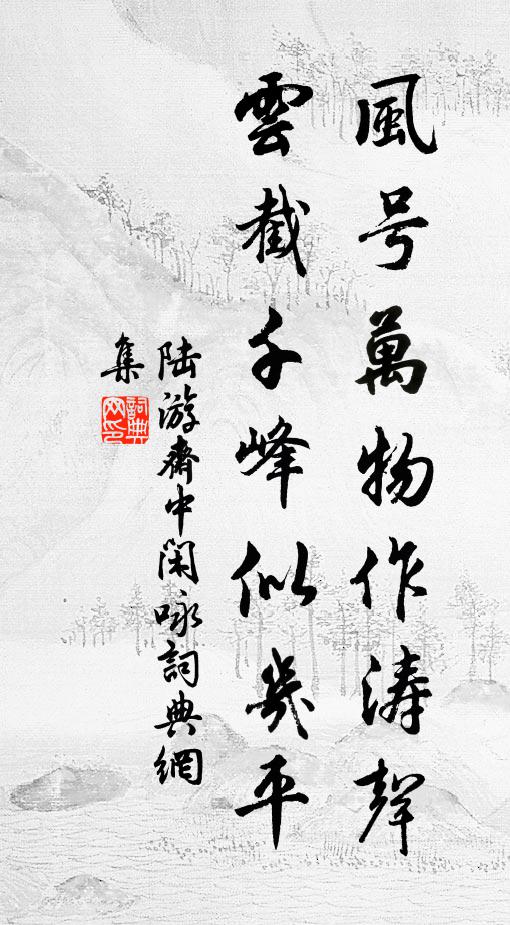 風号萬物作濤聲
雲截千峰似几平
陸游齋中閑咏詞典網
集
詞典網印